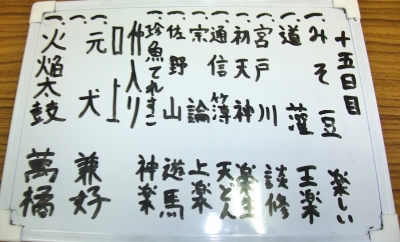 十五日目
一、みそ豆 楽しい
一、道灌 王楽
一、宮戸川 談修
一、初天神 楽生
一、通信簿 天どん
一、宗論 上楽
一、佐野山 遊馬
一、珍魚てれすこ 神楽
仲入り
一、口上
一、元犬 兼好
一、火焔太鼓 萬橘